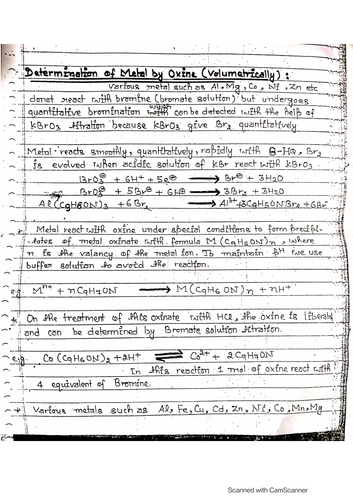 Determination of Metal by Oxine (Volumetrically) :
Various metal such as Al, Mg, Co, Ni, Zn etc
donot react with bromine (bromate solution) but undergoes
quantitative bromination which can be detected with the help of
KBrO₃ titration because KBrO₃ give Br₂ quantitatively
Metal reacts smoothly, quantitatively, rapidly with 8-HQ, Br₂
is evolved when acidic solution of KBr react with KBrO₃.
BrO₃⊖ + 6H⊕ + 5e⊖ → Br⊖ + 3H₂O
BrO₃⊖ + 5Br⊖ + 6H⊕ → 3Br₂ + 3H₂O
Al(C₉H₆ON)₃ + 6Br₂ → Al³⁺ + 3C₉H₅ONBr₂ + 6Br
Metal react with oxine under special conditions to form precipi-
tates of metal oxinate with formula M(C₉H₆ON)n, where
n is the valancy of the metal ion. To maintain pH we use
buffer solution to avoid the reaction.
e.g Mⁿ⁺ + nC₉H₇ON → M(C₉H₆ON)n + nH⁺
On the treatment of this oxinate with HCl, the oxine is liberate
and can be determined by Bromate solution titration.
e.g Co(C₉H₆ON)₂ + 2H⁺ ⇌ Co²⁺ + 2C₉H₇ON
In this reaction 1 mol of oxine react with
4 equivalent of Bromine.
Various metals such as Al, Fe, Cu, Cd, Zn, Ni, Co, Mn, Mg
Scanned with CamScanner